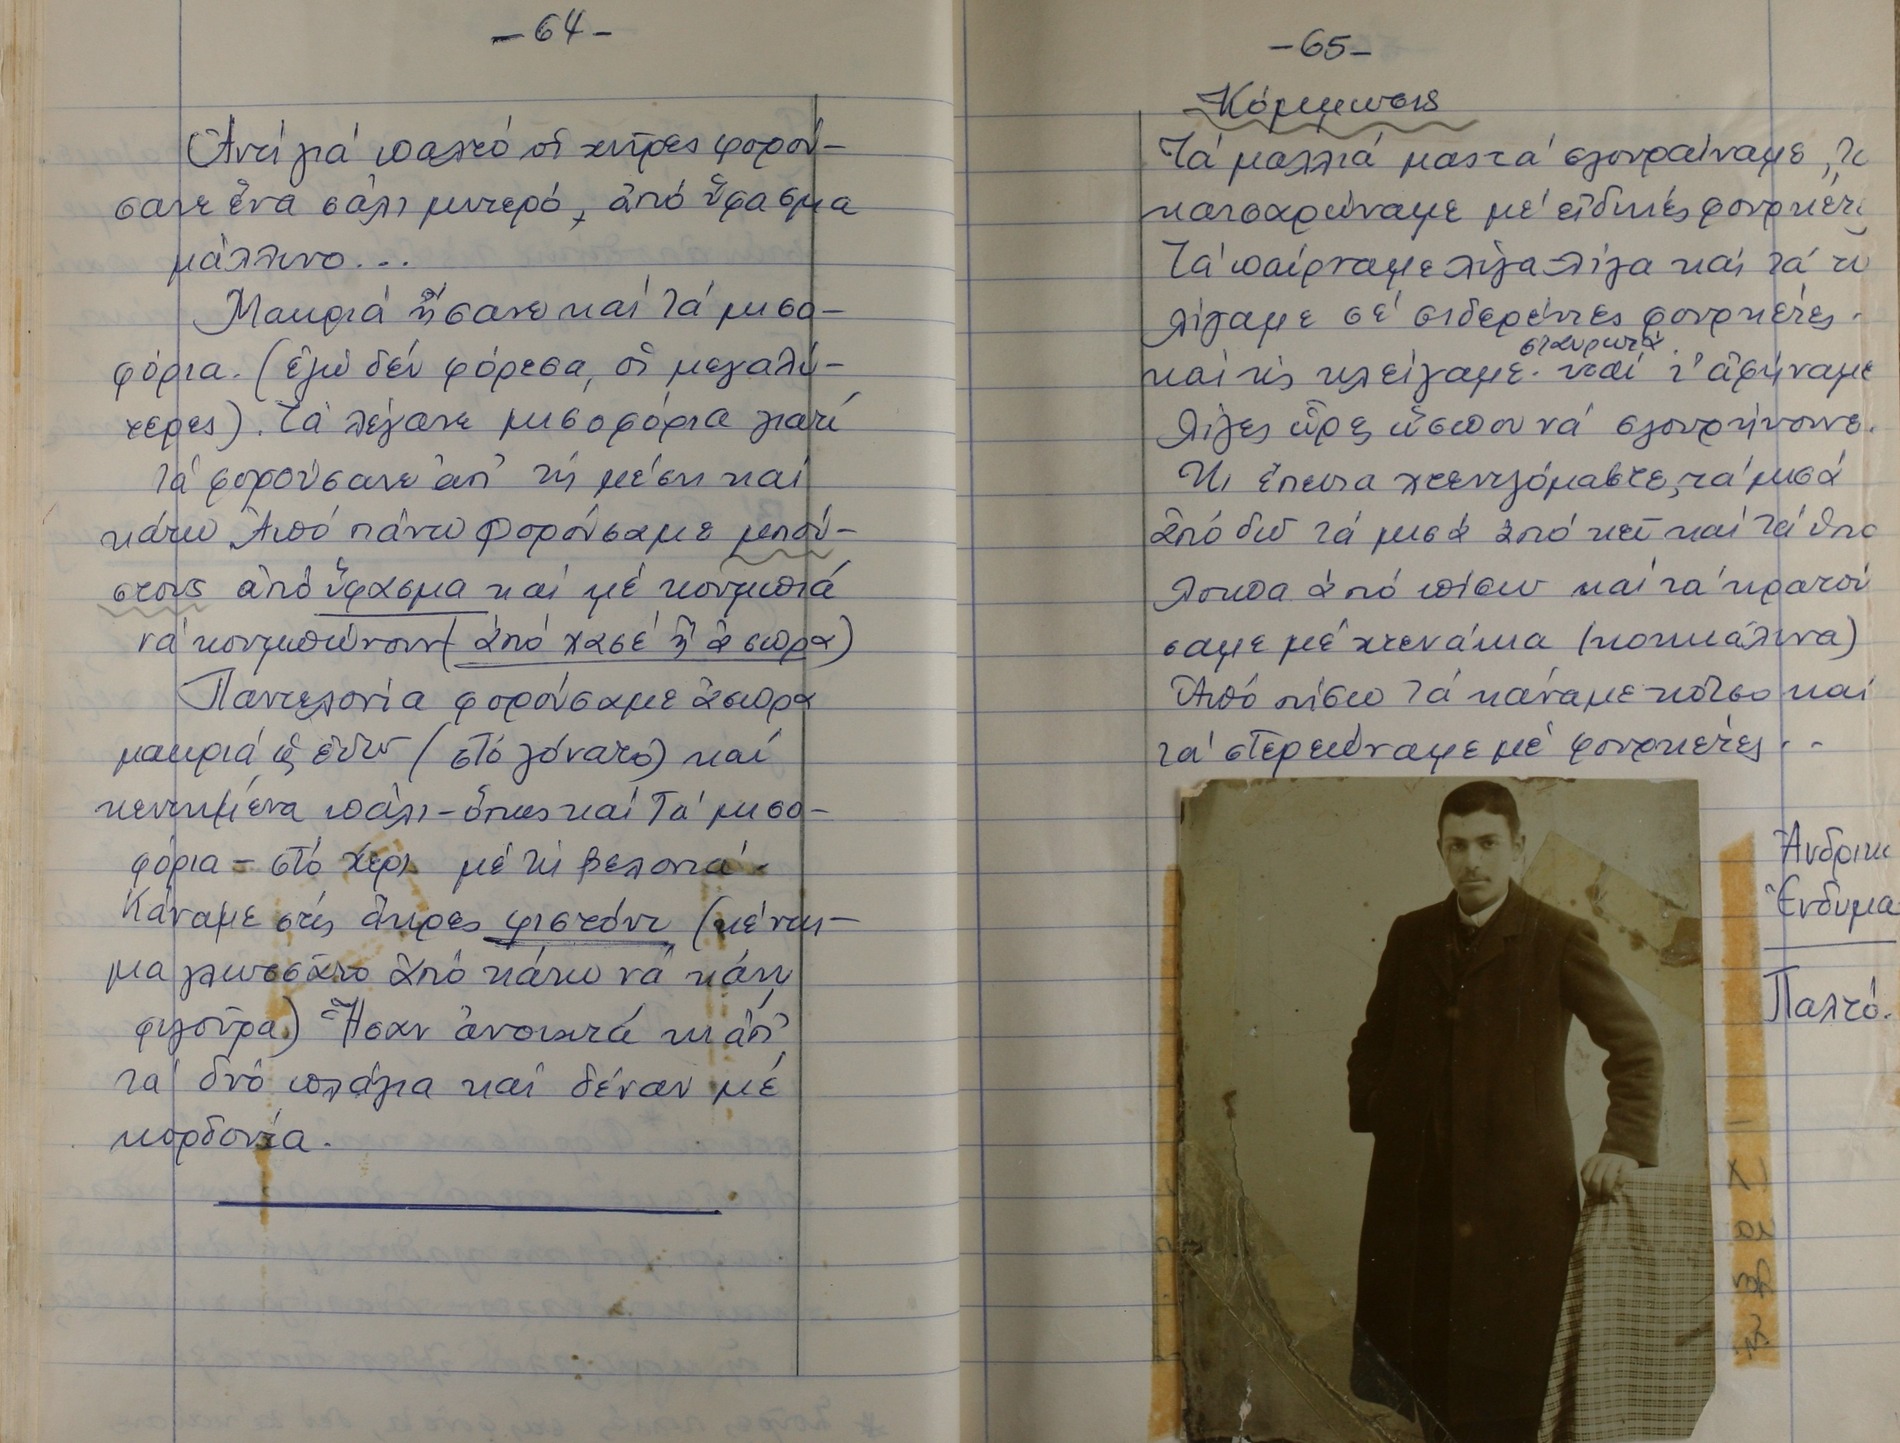 -64-
Ἀντί γιά παλτό οἱ χῆρες φορού-
σανε ἕνα σάλι μυτερό, ἀπό ὕφασμα
μάλλινο...
Μακριά ἤσανε καί τά μισο-
φόρια. (ἐγώ δέν φόρεσα, οἱ μεγαλύ-
τερες). Τά λέγανε μισοφόρια γιατί
τά φορούσανε ἀπ' τή μέση καί
κάτω Ἀπό πάνω φορούσαμε μπού-
στους ἀπό ὕφασμα καί μέ κουμπιά
νά κουμπώνουν (ἀπό χασέ ἤ ἄσπρα)
Παντελονία φορούσαμε ἄσπρα
μακριά ὥς ἐδῶ (στό γόνατο) καί
κεντημένα πάλι - ὅπως καί τά μισο-
φόρια - στό χέρι μέ τή βελονιά.
Κάναμε στίς ἄκρες φιστόνι (κέντη-
μα γλωσσάτο ἀπό κάτω νά κάνη
φιγούρα) Ἦσαν ἀνοιχτά κι ἀπ'
τά δυό πλάγια καί δέναν μέ
κορδονία.
-65-
Κόμμωσις
Τά μαλλιά μας τά σγουραίναμε, τά
κατσαρώναμε μέ εἰδικές φουρκέτε
Τά παίρναμε λίγα-λίγα καί τά τυ
λίγαμε σέ σιδερένιες φουρκέτες.
σταυρωτά
καί τίς κλείγαμε. καί τ' ἀφήναμε
λίγες ὧρες ὥσπου νά σγουρήνουνε.
Κι ἔπειτα χτενιζόμαστε, τά μισά
ἀπό δῶ τά μισά ἀπό κεῖ καί τά ὑπό
λοιπα ἀπό πίσω καί τά κρατού
σαμε μέ χτενάκια (κοκκάλινα)
Ἀπό πίσω τά κάναμε κότσο καί
τά στερεώναμε μέ φουρκέτες..
Ἀνδρικ
Ἔνδυμα
Παλτό.